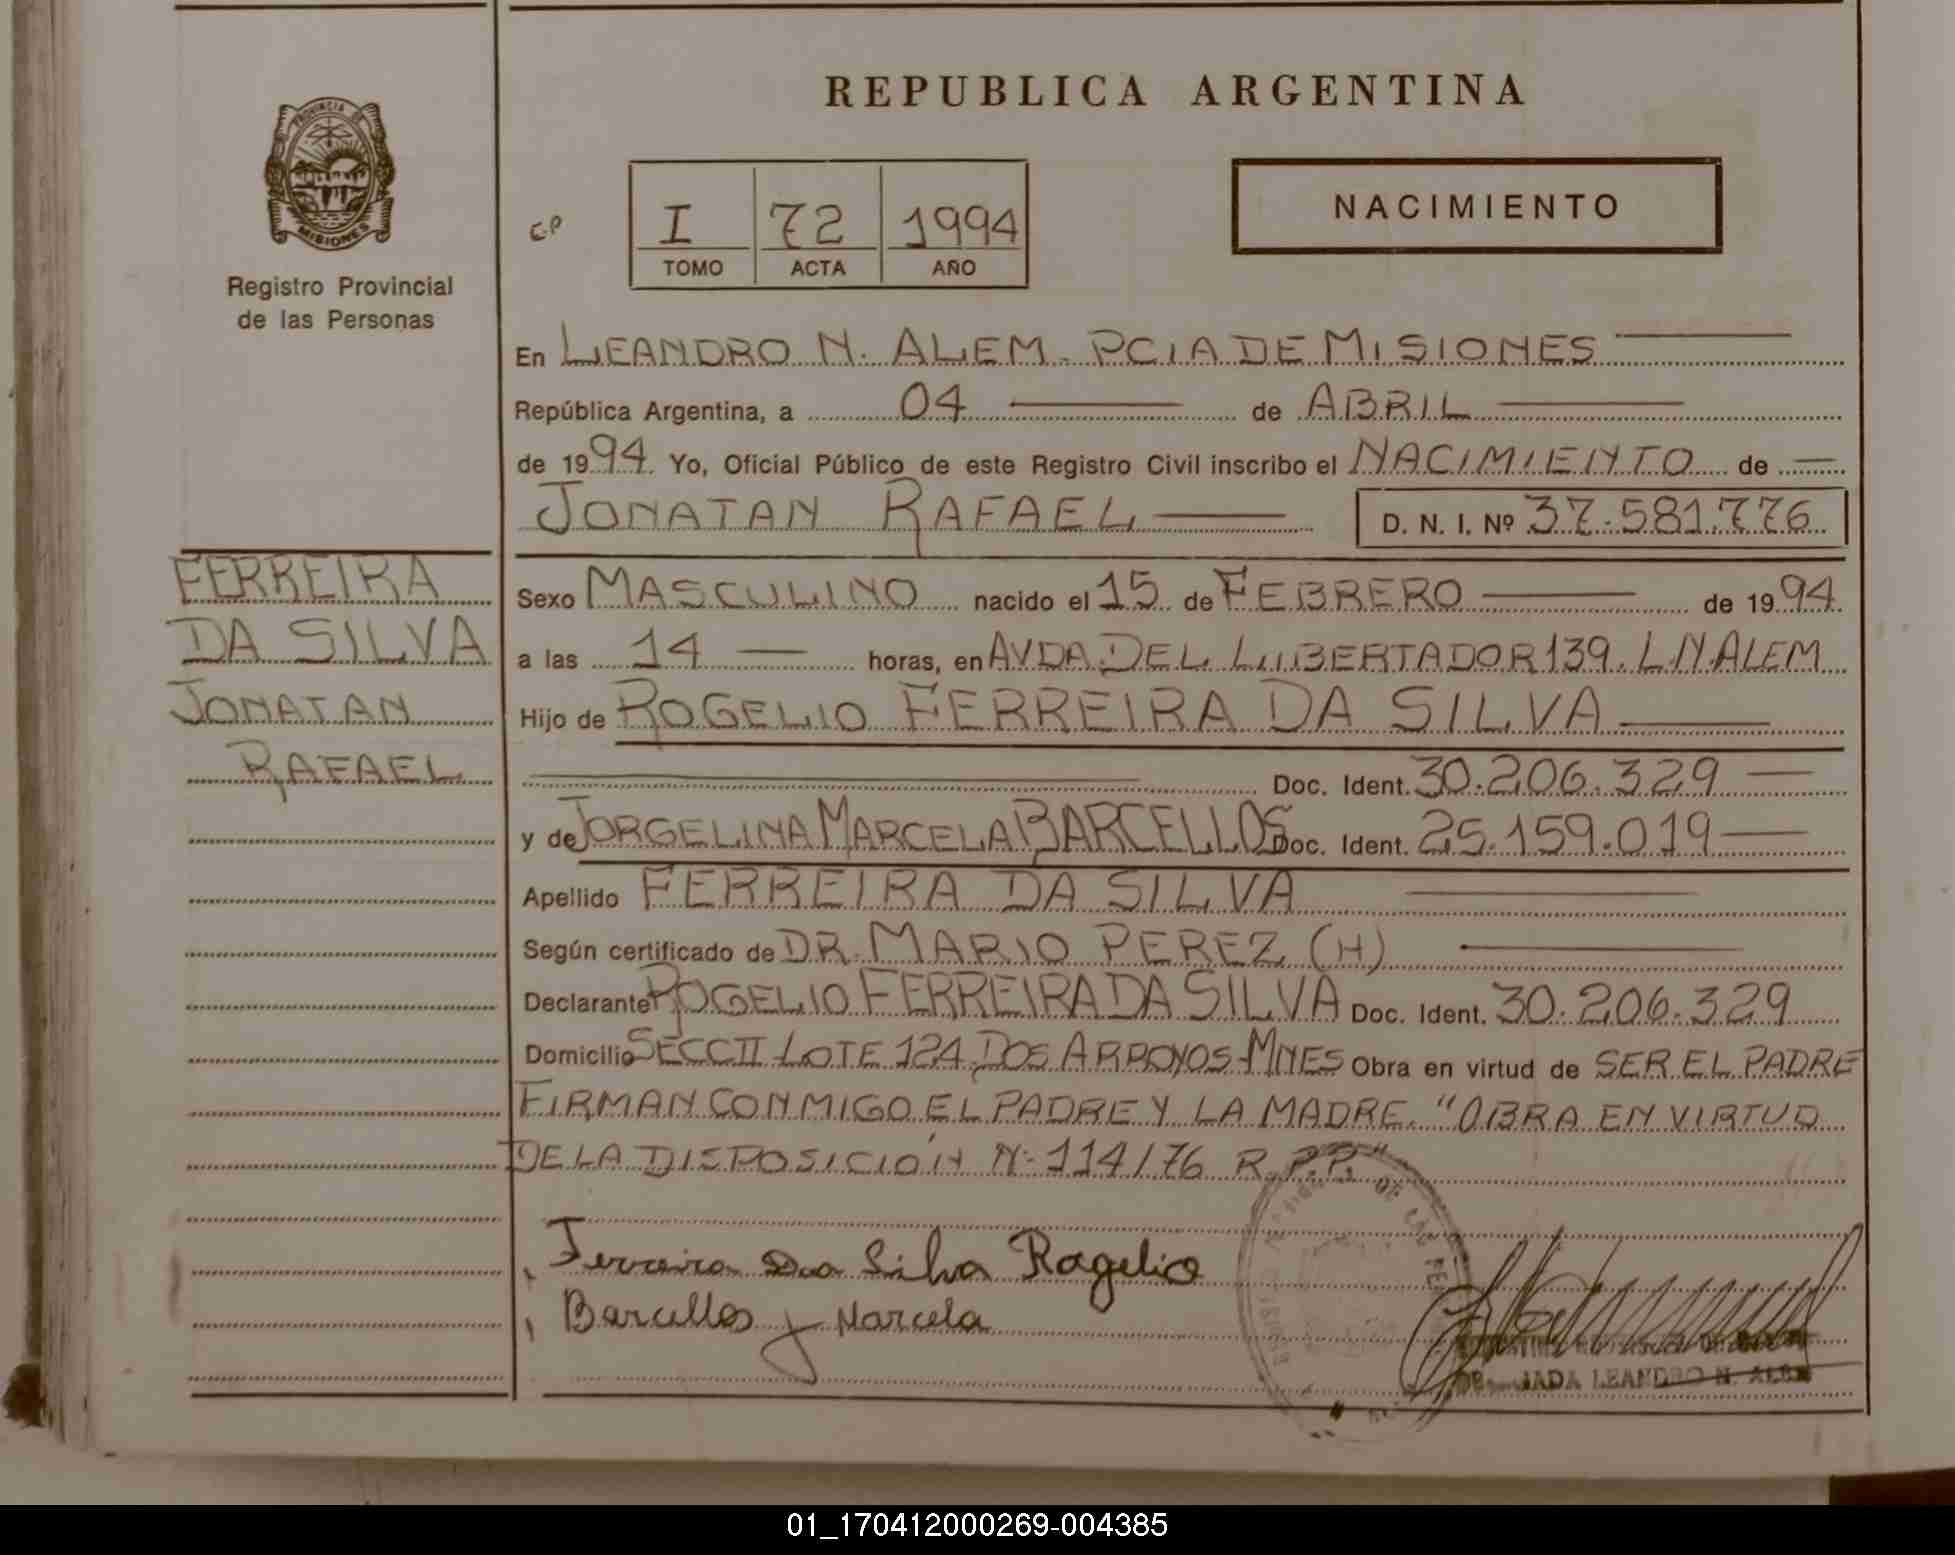 REPUBLICA ARGENTINA
PROVINCIA DE
MISIONES
Registro Provincial
de las Personas
I 72 1994
TOMO ACTA AÑO
NACIMIENTO
En LEANDRO N. ALEM. PCIA DE MISIONES
República Argentina, a 04 de ABRIL
de 1994 Yo, Oficial Público de este Registro Civil inscribo el NACIMIENTO de
JONATAN RAFAEL D. N. I. Nº 37.581.776
FERREIRA
DA SILVA
JONATAN
RAFAEL
Sexo MASCULINO nacido el 15 de FEBRERO de 1994
a las 14 horas, en AVDA DEL LIBERTADOR 139. L.N.ALEM
Hijo de ROGELIO FERREIRA DA SILVA
Doc. Ident. 30.206.329
y de JORGELINA MARCELA BARCELLOS Doc. Ident. 25.159.019
Apellido FERREIRA DA SILVA
Según certificado de DR. MARIO PEREZ (H)
Declarante ROGELIO FERREIRA DA SILVA Doc. Ident. 30.206.329
Domicilio SECC II LOTE 124 DOS ARROYOS-MNES Obra en virtud de SER EL PADRE
FIRMAN CONMIGO EL PADRE Y LA MADRE. "OBRA EN VIRTUD
DE LA DISPOSICIÓN Nº 114/76 R.P.P."
Ferreira Da Silva Rogelio
Barcellos J Marcela
LEANDRO N. ALEM
01_170412000269-004385